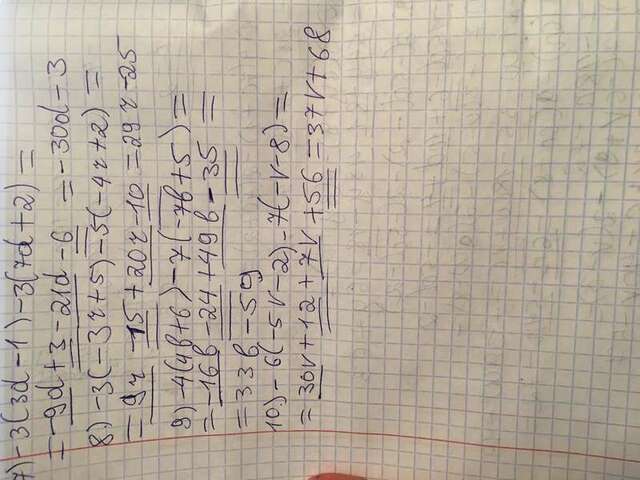 7) -3(3d-1)-3(7d+2)=
=-9d+3-21d-6 =-30d-3
8.) -3(-3r+5)-5(-4r+2)=
=9r-15+20r-10=29r-25
9) -4(4b+6)-7(-7b+5)=
=-16b-24+49b-35=
=33b-59
10.) -6(-5v-2)-7(-v-8)=
=30v+12+7v+56=37v+68